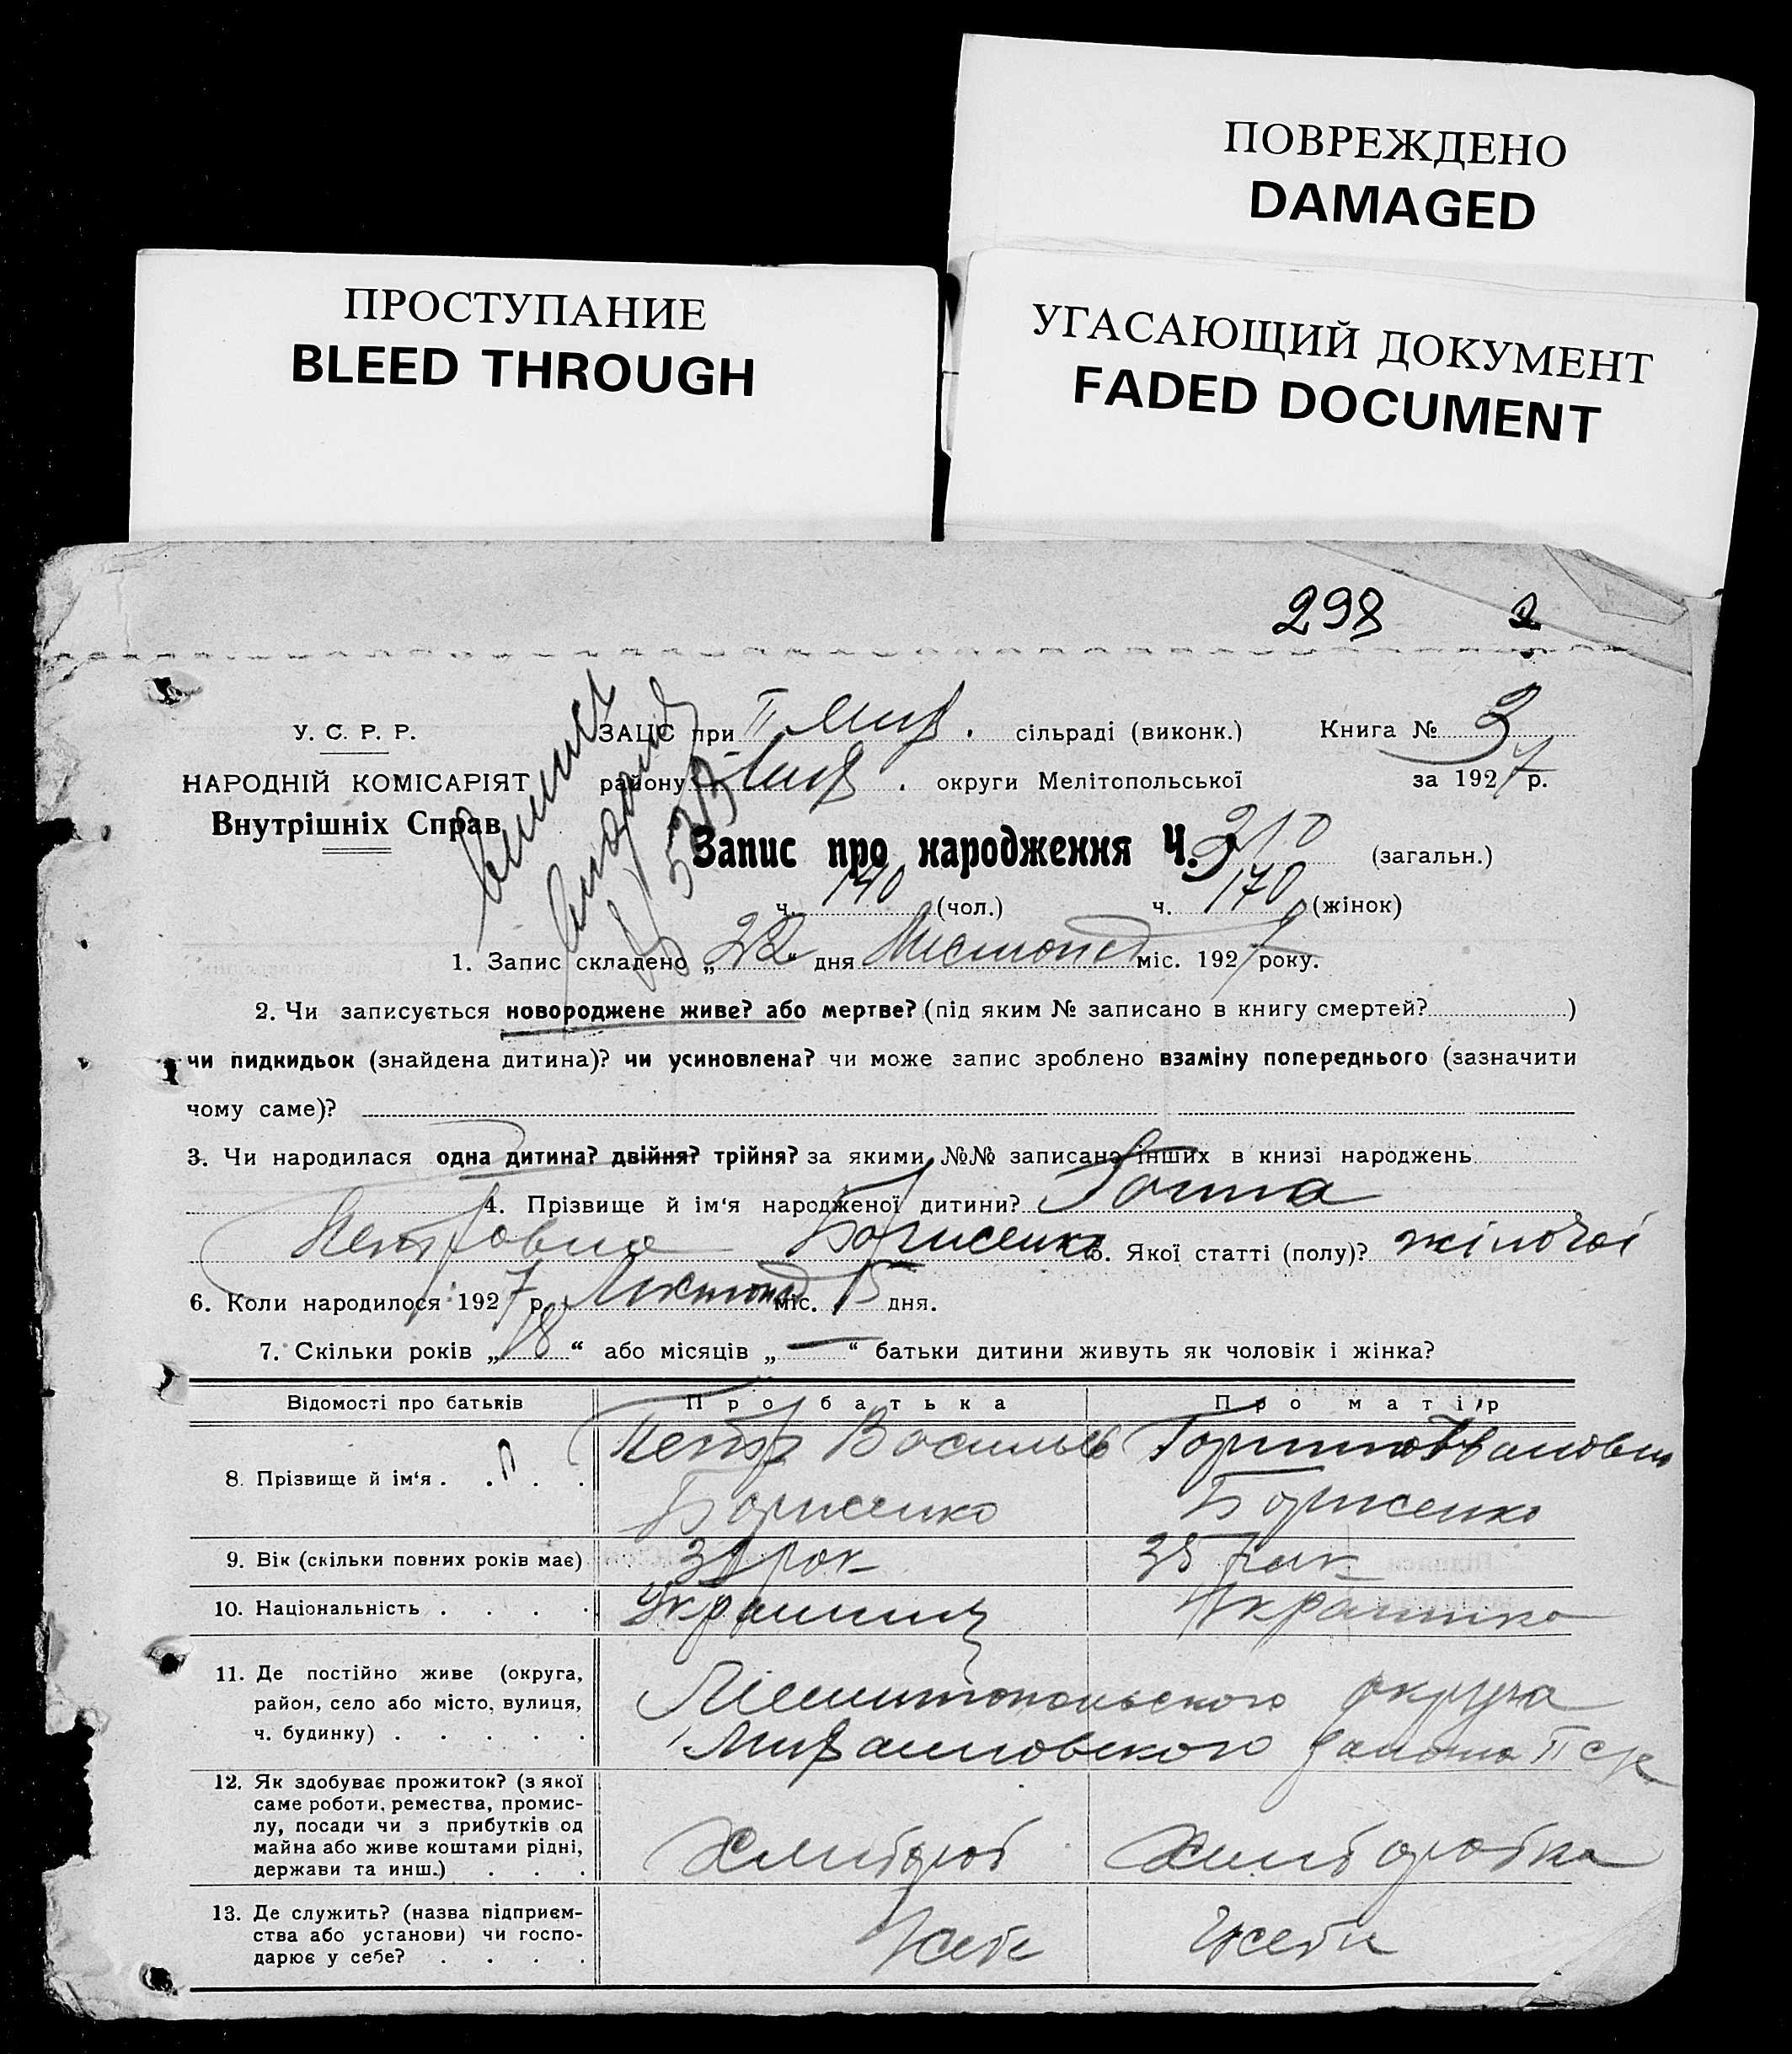 ПОВРЕЖДЕНО
DAMAGED
ПРОСТУПАНИЕ
BLEED THROUGH
УГАСАЮЩИЙ ДОКУМЕНТ
FADED DOCUMENT
298 2
У. С. Р. Р.
НАРОДНІЙ КОМІСАРІЯТ
Внутрішніх Справ
ЗАЦС при II Мир. сільраді (виконк.) Книга № 3
району Мир. округи Мелітопольської за 1927 р.
Запис про народження Ч. 310 (загальн.)
ч. 140 (чол.) ч. 170 (жінок)
1. Запис складено „22“ дня Листопад міс. 1927 року.
2. Чи записується новороджене живе? або мертве? (під яким № записано в книгу смертей? )
чи пидкидьок (знайдена дитина)? чи усиновлена? чи може запис зроблено взаміну попереднього (зазначити
чому саме)?
3. Чи народилася одна дитина? двійня? трійня? за якими №№ записано інших в книзі народжень
4. Прізвище й ім‘я народженої дитини?
Петровна Борисенко 5. Якої статті (полу)? жіночої
6. Коли народилося 1927 р. Листопад міс. 15 дня.
7. Скільки років „18“ або місяців „—“ батьки дитини живуть як чоловік і жінка?
Відомості про батьків Про батька Про матір
8. Прізвище й ім‘я . . . . Петр Васильев Ивановна
Борисенко Борисенко
9. Вік (скільки повних років має) рок 38 рик
10. Національність . . . . Украинец Украинка
11. Де постійно живе (округа,
район, село або місто, вулиця,
ч. будинку) . . . . .
Мелитопольского округа
Мирановского района II с/р
12. Як здобуває прожиток? (з якої
саме роботи, ремества, промис-
лу, посади чи з прибутків од
майна або живе коштами рідні,
держави та инш.) . . .
Хлибороб Хлиборобка
13. Де служить? (назва підприєм-
ства або установи) чи госпо-
дарює у себе? . . . .
У себе У себе